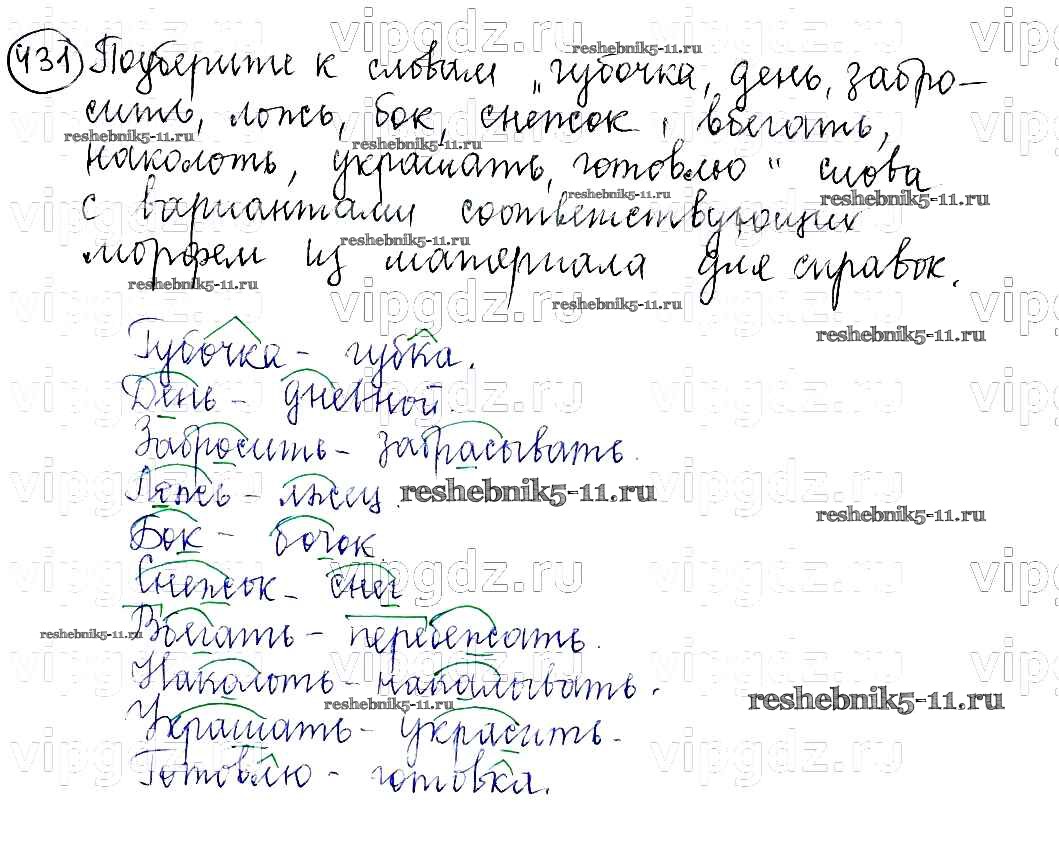 431 Подберите к словам „губочка, день, забро-
сить, ложь, бок, снежок, вбегать,
наколоть, украшать, готовлю" слова
с вариантами соответствующих
морфем из материала для справок.
Губочка - губка.
День - дневной.
Забросить - забрасывать.
Ложь - лжец.
reshebnik5-11.ru
Бок - бочок.
Снежок - снег
Вбегать - перебежать.
Наколоть - накалывать.
Украшать - украсить.
Готовлю - готовка.
reshebnik5-11.ru
vipgdz.ru